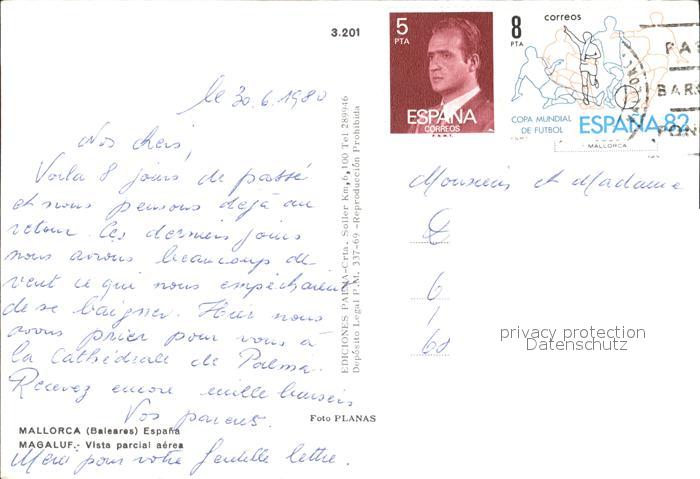 3.201
5
PTA
ESPAÑA
CORREOS
F.N.M.T.
8
PTA
correos
COPA MUNDIAL
DE FUTBOL
ESPAÑA 82
F.N.M.T.
MALLORCA
le 30.6.1980
Nos chers,
Voila 8 jours de passé
et nous pensons déjà au
retour. Ces derniers jours
nous avons beaucoup de
vent ce qui nous empêchaient
de se baigner. Hier nous
avons prier pour vous à
la Cathédrale de Palma.
Recevez encore mille baisers
Vos parents.
Merci pour votre gentille lettre.
MALLORCA (Baleares) España
MAGALUF.- Vista parcial aérea
Foto PLANAS
EDICIONES PALMA-Crta. Soller Km,6,100 Tel 289946
Depósito Legal P.M. 337-69 -Reproducción Prohibida
Monsieur et Madame
privacy protection
Datenschutz